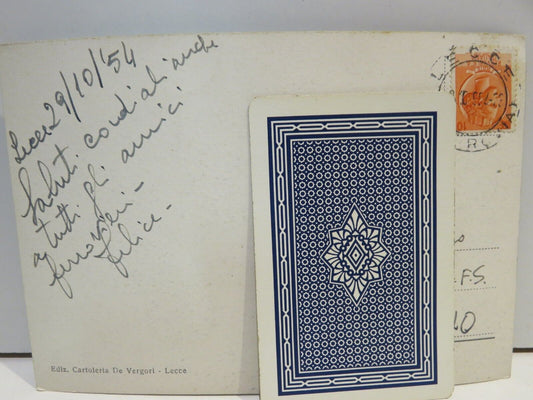 Lecce 29/10/'54
Saluti cordiali anche
a tutti gli amici
ferrovieri -
felice -
LECCE
F.S.
Ediz. Cartoleria De Vergori - Lecce